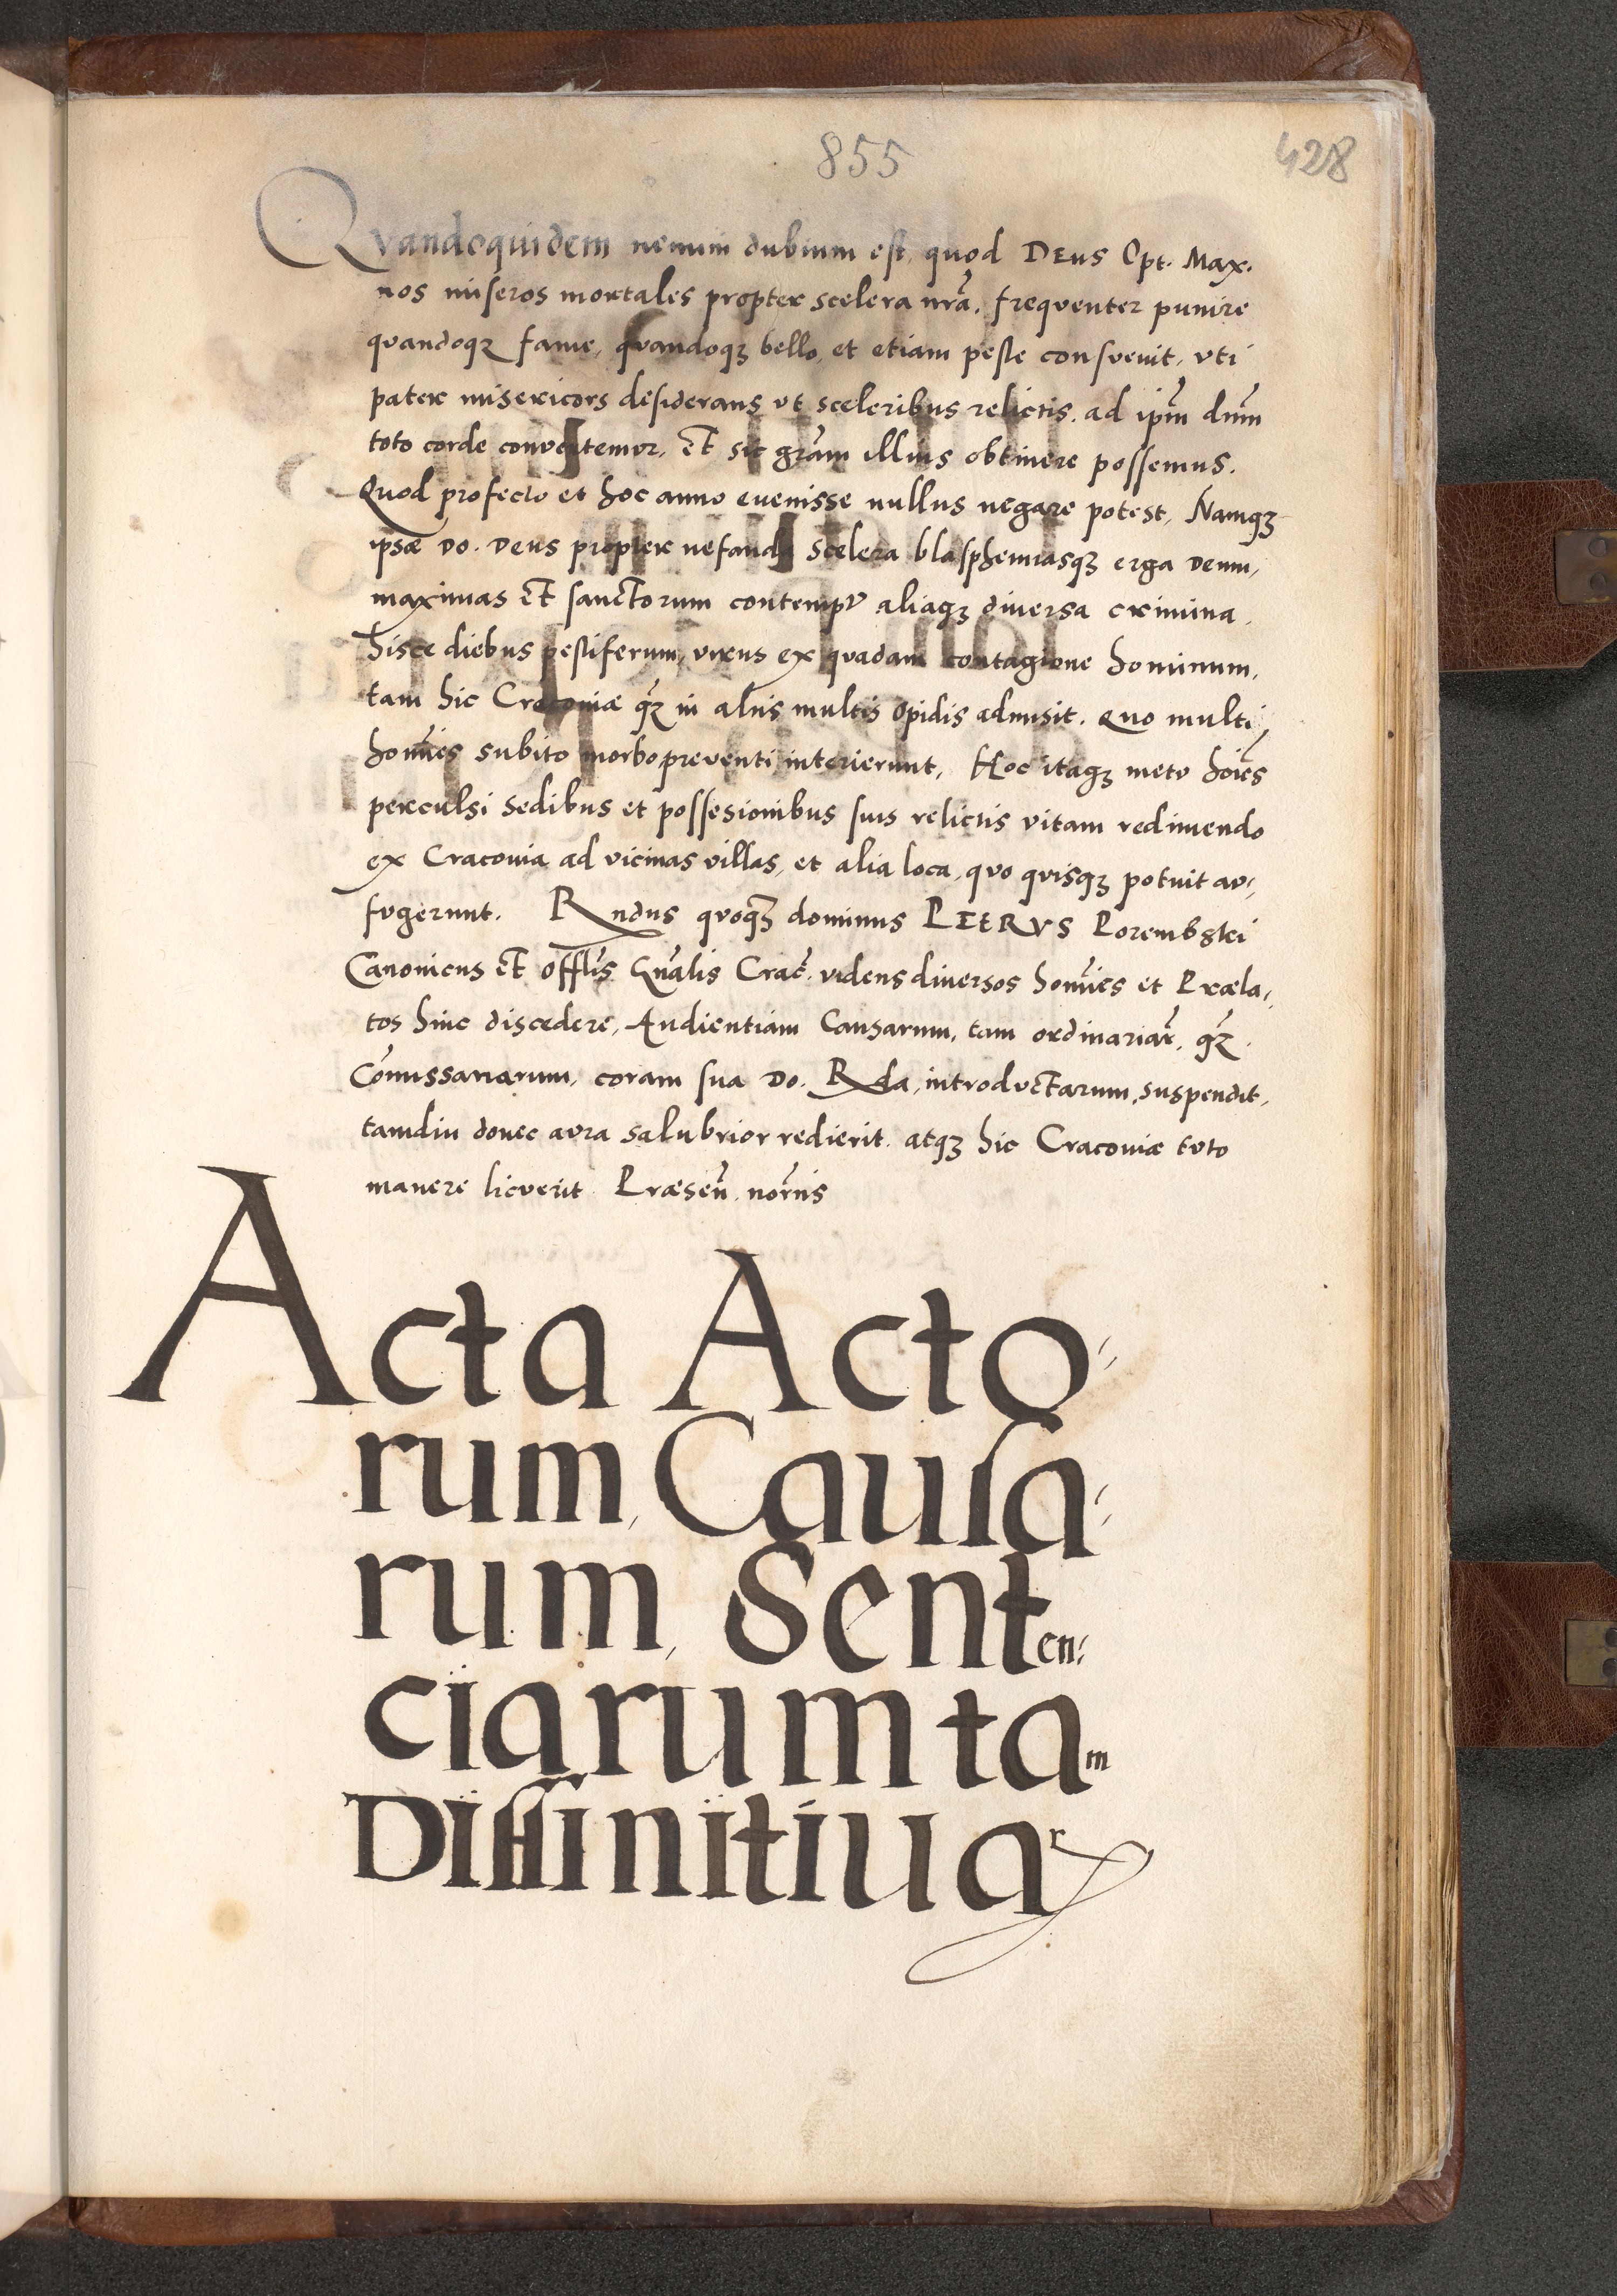 855
428
Qvandoquidem nemini dubium est, quod DEus Opt. Max.
nos miseros mortales propter scelera nr̃a, freqventer punire
qvandoqʒ fame, qvandoqʒ bello, et etiam peste consvevit, vti
pater misericors desiderans vt sceleribus relictis, ad ip̃m dn̄m
toto corde convertemvr, Et sic gr̃am illius obtinere possemus.
Quod profecto et hoc anno euenisse nullus negare potest, Namqʒ
ipsæ Do. Deus propter nefanda scelera blasphemiasqʒ erga Deum,
maximas Et sanctorum contemptv aliaqʒ diuersa crimina,
hisce diebus pestiferum, virus ex qvadam contagione hominum,
tam hic Cracouiæ qʒ̃ in aliis multis opidis admisit. Quo multi
homĩes subito morbo preventi interierunt, Hoc itaqʒ metv hoĩes
perculsi Sedibus et possesionibus suis relictis vitam redimendo
ex Cracouia ad vicinas villas, et alia loca, qvo qvisqʒ potvit av-
fvgerunt. Rndus qvoqʒ̃ dominus PEtRVS Porembski
Canonicus Et Offl̃is Gñalis Crac̃. videns diuersos homĩes et Præla-
tos hinc discedere, Audientiam Causarum, tam ordinariar̃, qʒ̃
Com̃issariarum, coram sua Do. Rda, introdvctarum, suspendit,
tamdiu donec avra salubrior redierit, atqʒ hic Cracouiæ tvto
manere licverit. Præseñ. nor̃iis
Acta Acto-
rum, Causa-
rum, Senten-
ciarum tam
Diffinitiuar